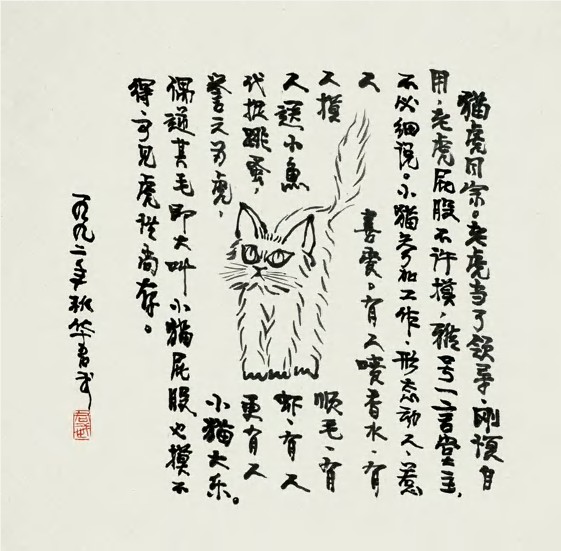 猫虎同宗。老虎当了领导、刚愎自
用、老虎屁股不许摸、雅号一言堂主、
不必细说。小猫参加工作、形态动人、惹
人喜爱。有人喷香水、有
人摸顺毛、有
人送小鱼虾、有人
代捉跳蚤、更有人
誉之为虎、小猫大乐。
偶逆其毛即大叫、小猫屁股也摸不
得、可见虎性尚存。
一九九二年秋华君武